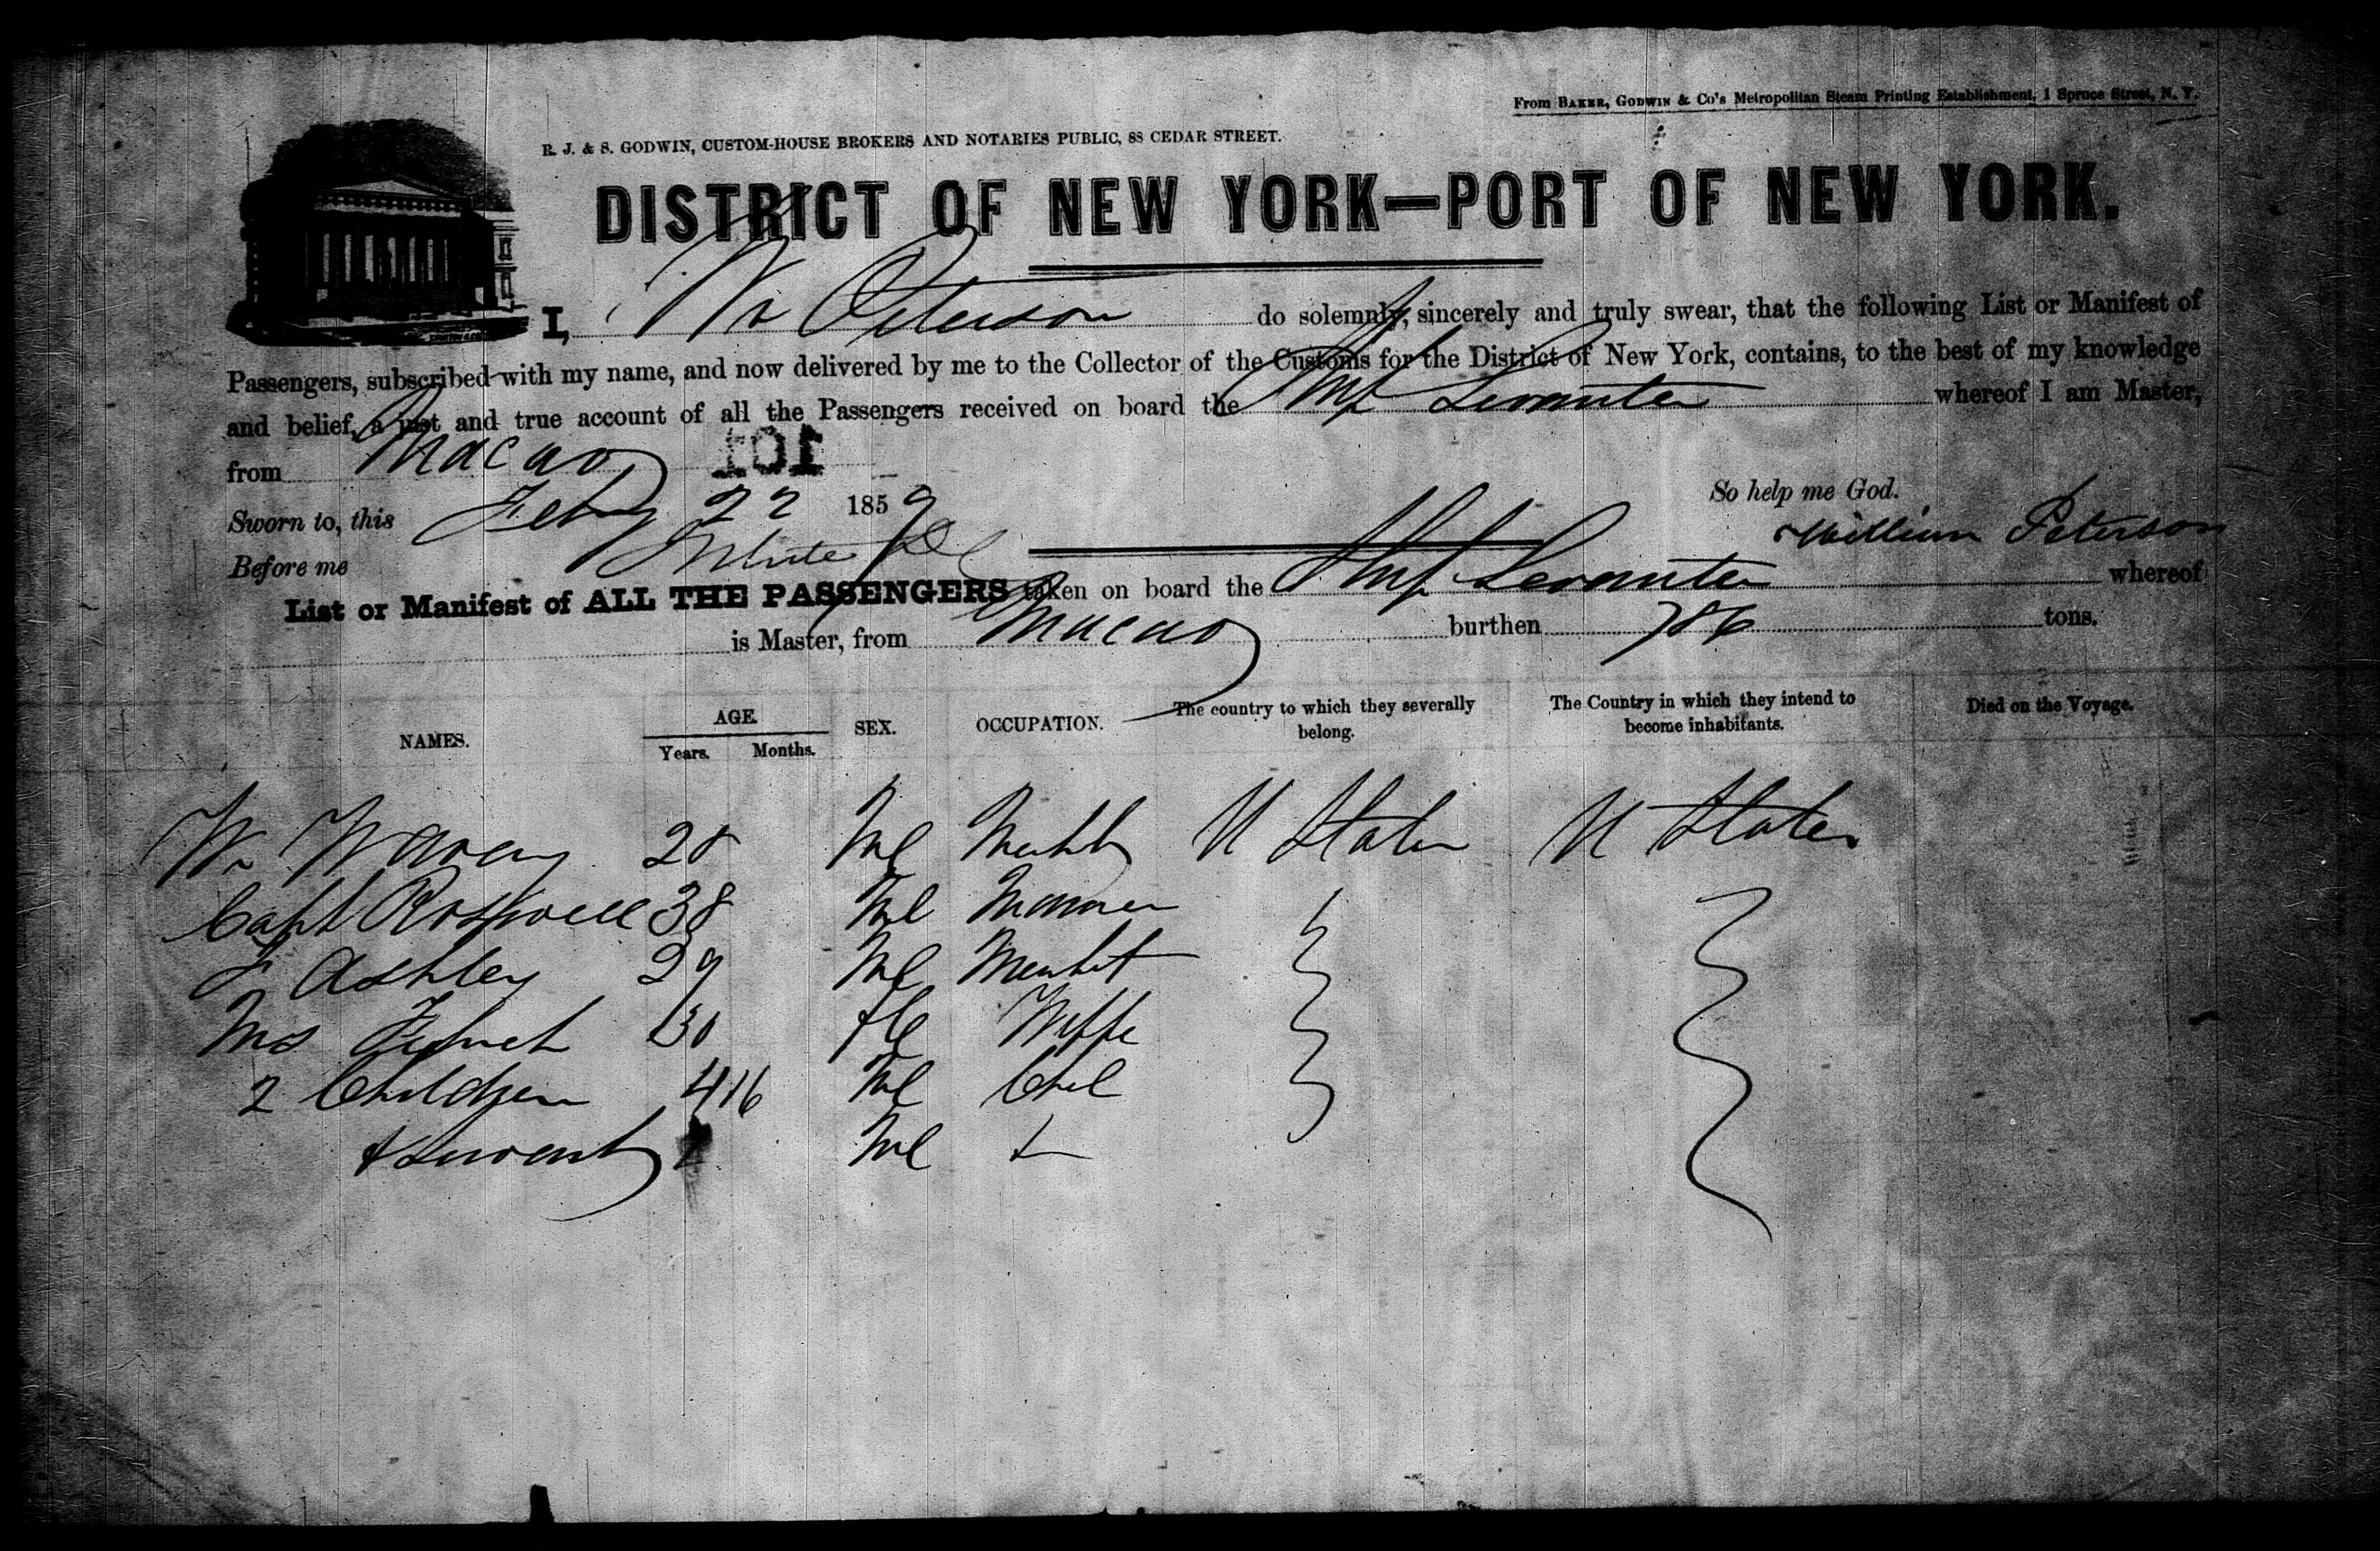 From BAKER, GODWIN & Co's Metropolitan Steam Printing Establishment, 1 Spruce Street, N. Y.
R. J. & S. GODWIN, CUSTOM-HOUSE BROKERS AND NOTARIES PUBLIC, 88 CEDAR STREET.
DISTRICT OF NEW YORK—PORT OF NEW YORK.
I, Wm Peterson do solemnly, sincerely and truly swear, that the following List or Manifest of
Passengers, subscribed with my name, and now delivered by me to the Collector of the Customs for the District of New York, contains, to the best of my knowledge
and belief, a just and true account of all the Passengers received on board the Ship Levanter whereof I am Master,
from Macao 101
So help me God.
Sworn to, this Feby 22 1859 William Peterson
Before me White
List or Manifest of ALL THE PASSENGERS taken on board the Ship Levanter whereof
is Master, from Macao burthen 786 tons.
NAMES. AGE. Years. Months. SEX. OCCUPATION. The country to which they severally belong. The Country in which they intend to become inhabitants. Died on the Voyage.
Wm 28 Ml U States U States
Capt Rosswell 38 Ml Mariner
Ashley 29 Ml Mercht
Mrs 30 fle Wiffe
2 Children 4 16 Ml Chil
& Servant Ml